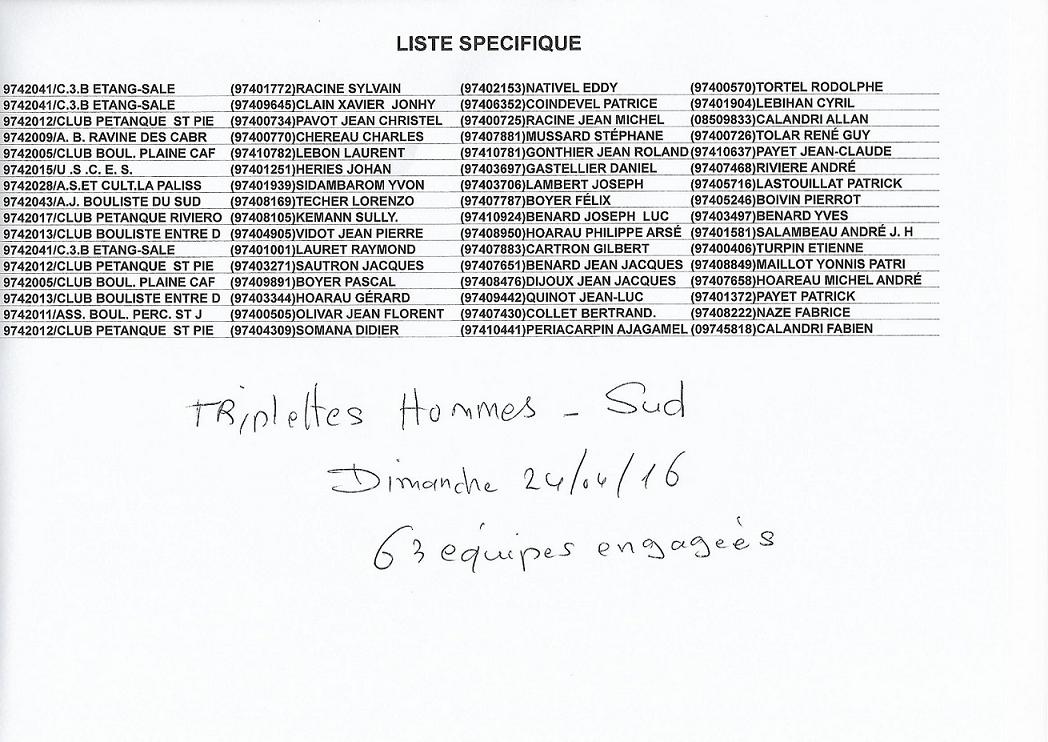 LISTE SPECIFIQUE
9742041/C.3.B ETANG-SALE (97401772)RACINE SYLVAIN (97402153)NATIVEL EDDY (97400570)TORTEL RODOLPHE
9742041/C.3.B ETANG-SALE (97409645)CLAIN XAVIER  JONHY (97406352)COINDEVEL PATRICE (97401904)LEBIHAN CYRIL
9742012/CLUB PETANQUE  ST PIE (97400734)PAVOT JEAN CHRISTEL (97400725)RACINE JEAN MICHEL (08509833)CALANDRI ALLAN
9742009/A. B. RAVINE DES CABR (97400770)CHEREAU CHARLES (97407881)MUSSARD STÉPHANE (97400726)TOLAR RENÉ GUY
9742005/CLUB BOUL. PLAINE CAF (97410782)LEBON LAURENT (97410781)GONTHIER JEAN ROLAND (97410637)PAYET JEAN-CLAUDE
9742015/U .S .C. E. S. (97401251)HERIES JOHAN (97403697)GASTELLIER DANIEL (97407468)RIVIERE ANDRÉ
9742028/A.S.ET CULT.LA PALISS (97401939)SIDAMBAROM YVON (97403706)LAMBERT JOSEPH (97405716)LASTOUILLAT PATRICK
9742043/A.J. BOULISTE DU SUD (97408169)TECHER LORENZO (97407787)BOYER FÉLIX (97405246)BOIVIN PIERROT
9742017/CLUB PETANQUE RIVIERO (97408105)KEMANN SULLY. (97410924)BENARD JOSEPH  LUC (97403497)BENARD YVES
9742013/CLUB BOULISTE ENTRE D (97404905)VIDOT JEAN PIERRE (97408950)HOARAU PHILIPPE ARSÉ (97401581)SALAMBEAU ANDRÉ J. H
9742041/C.3.B ETANG-SALE (97401001)LAURET RAYMOND (97407883)CARTRON GILBERT (97400406)TURPIN ETIENNE
9742012/CLUB PETANQUE  ST PIE (97403271)SAUTRON JACQUES (97407651)BENARD JEAN JACQUES (97408849)MAILLOT YONNIS PATRI
9742005/CLUB BOUL. PLAINE CAF (97409891)BOYER PASCAL (97408476)DIJOUX JEAN JACQUES (97407658)HOAREAU MICHEL ANDRÉ
9742013/CLUB BOULISTE ENTRE D (97403344)HOARAU GÉRARD (97409442)QUINOT JEAN-LUC (97401372)PAYET PATRICK
9742011/ASS. BOUL. PERC. ST J (97400505)OLIVAR JEAN FLORENT (97407430)COLLET BERTRAND. (97408222)NAZE FABRICE
9742012/CLUB PETANQUE  ST PIE (97404309)SOMANA DIDIER (97410441)PERIACARPIN AJAGAMEL (09745818)CALANDRI FABIEN
TRiplettes Hommes - Sud
Dimanche 24/04/16
63 équipes engageès